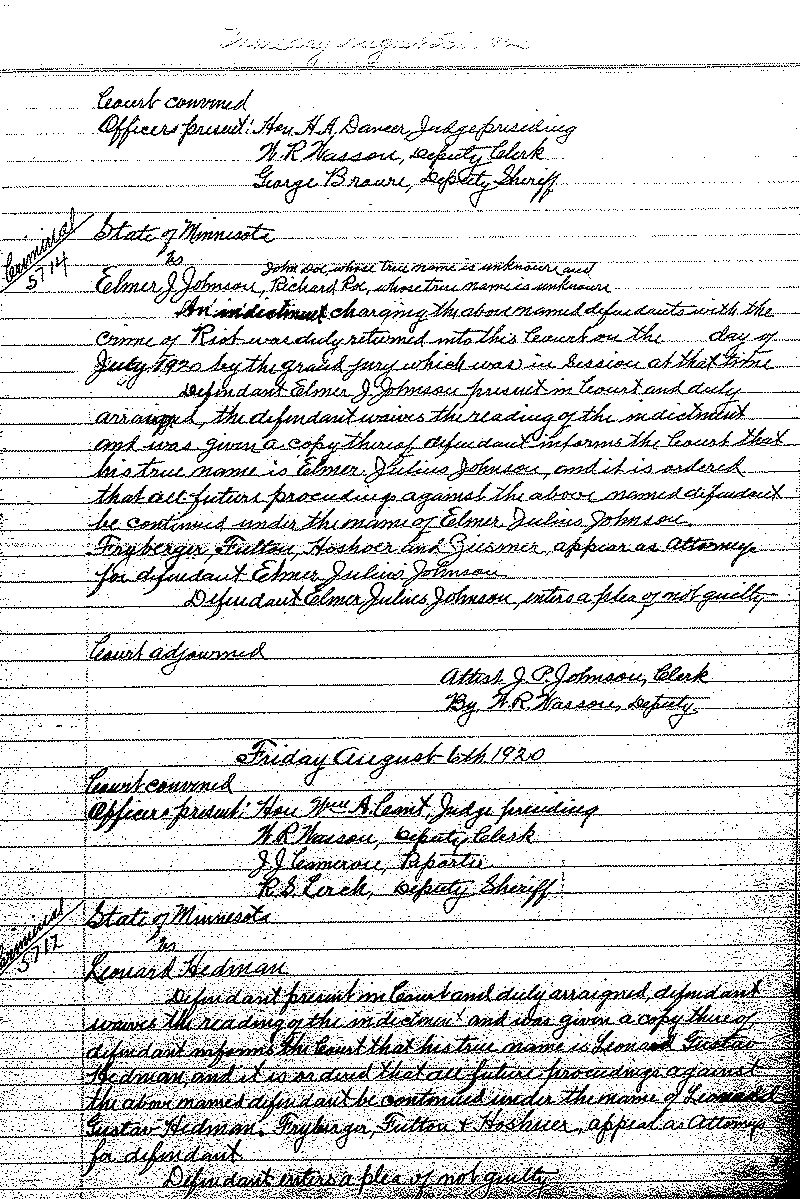 Court convened
Officers present: Hon. H.A. Dancer, Judge presiding
W.R. Wasson, Deputy Clerk
George Broure, Deputy Sheriff
Criminal
5714
State of Minnesota
vs
John Doe, whose true name is unknown and
Elmer J. Johnson, Richard Roe, whose true name is unknown
An indictment charging the above named defendants with the
crime of Riot was duly returned into this Court on the day of
July 1920 by the grand jury which was in session at that time
Defendant Elmer J. Johnson present in Court and duly
arraigned, the defendant waives the reading of the indictment
and was given a copy thereof defendant informs the Court that
his true name is Elmer Julius Johnson, and it is ordered
that all future proceedings against the above named defendant
be continued under the name of Elmer Julius Johnson.
Fryberger, Fulton, Hoshour and Ziesmer, appear as Attorneys
for defendant Elmer Julius Johnson
Defendant Elmer Julius Johnson, enters a plea of not guilty
Court adjourned
Attest J.P. Johnson, Clerk
By W.R. Wasson, Deputy.
Friday August 6th 1920
Court convened
Officers present: Hon Wm A. Cant, Judge presiding
W.R. Wasson, Deputy Clerk
J.J. Cameron, Reporter
R.S. Lerch, Deputy Sheriff
Criminal
5717
State of Minnesota
vs
Leonard Hedman
Defendant present in Court and duly arraigned, defendant
waives the reading of the indictment and was given a copy thereof
defendant informs the Court that his true name is Leonard Gustav
Hedman and it is ordered that all future proceedings against
the above named defendant be continued under the name of Leonard
Gustav Hedman. Fryberger, Fulton & Hoshour, appear as Attorneys
for defendant.
Defendant enters a plea of not guilty